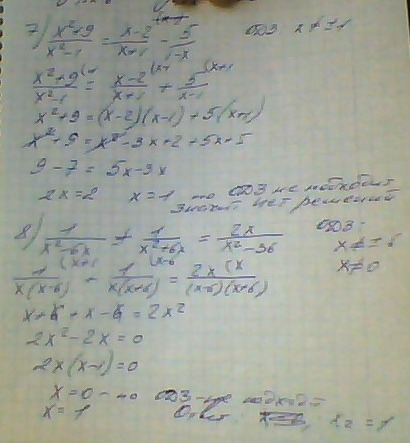 7) (x²+9)/(x²-1) = (x-2)/(x+1) - 5/(1-x) ОДЗ x ≠ ±1
(x²+9)/(x²-1) = (x-2)/(x+1) + 5/(x-1)
x²+9 = (x-2)(x-1) + 5(x+1)
x²+9 = x²-3x+2+5x+5
9-7 = 5x-3x
2x=2 x=1 по ОДЗ не подходит
значит нет решений
8) 1/(x²-6x) + 1/(x²+6x) = 2x/(x²-36) ОДЗ:
x ≠ ±6
x ≠ 0
1/(x(x-6)) + 1/(x(x+6)) = 2x/((x-6)(x+6))
x+6+x-6 = 2x²
2x²-2x=0
2x(x-1)=0
x=0 - по ОДЗ - не подход
x=1 Ответ: x₂=1